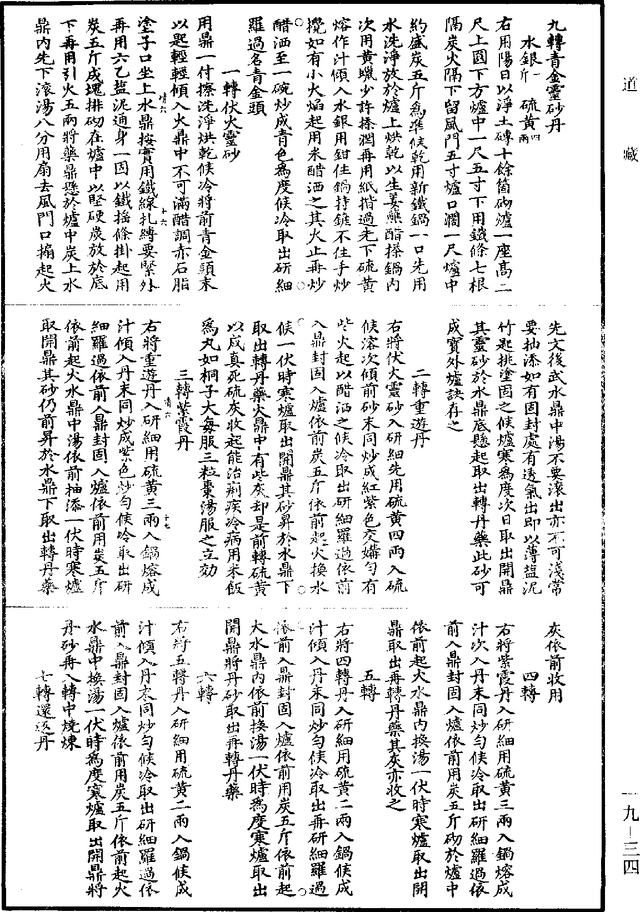 道藏
九轉青金靈砂丹
水銀一斤 硫黃四兩
右用陽日以淨土磚十餘箇砌爐一座高二
尺上圓下方爐中一尺五寸下用鐵條七根
隔炭火隔下留風門五寸爐口濶一尺爐中
約盛炭五斤為準候乾用新鐵鍋一口先用
水洗淨放於爐上烘乾以生姜蘸醋搽鍋内
次用黃蠟少許搽潤再用紙揩過先下硫黃
熔作汁傾入水銀用鉗住鍋持鎚不住手炒
攪如有小火焰起用米醋洒之其火止再炒
醋洒至一碗炒成青色為度候冷取出研細
羅過名青金頭
一轉伏火靈砂
用鼎一付擦洗淨烘乾候冷將前青金頭末
以匙輕輕傾入火鼎中不可滿醋調赤石脂
塗子口坐上水鼎按實用鐵線扎縛要緊外
再用六乙塩泥通身一固以鐵搖條掛起用
炭五斤成塊排砌在爐中以堅硬炭放於底
下再用引火五兩將藥鼎懸於爐中炭上水
鼎内先下滚湯八分用扇去風門口搧起火
先文後武水鼎中湯不要滚出亦不可淺常
要抽添如有固封處有透氣出即以薄塩泥
竹起挑塗固之候爐寒為度次日取出開鼎
其靈砂於水鼎底懸起取出轉丹藥此砂可
成寳外爐訣存之
二轉重遊丹
右將伏火靈砂入研細先用硫黃四兩入硫
候溶次傾前砂末同炒成紅紫色交媾勻有
些火起以醋洒之候冷取出研細羅過依前
入鼎封固入爐依前炭五斤依前起火換水
候一伏時寒爐取出開鼎其砂昇於水鼎下
取出轉丹藥火鼎中有些灰却是前轉硫黃
以成真死硫灰收起能治剤疾冷病用米飯
為丸如桐子大每服三粒棗湯服之立効
三轉紫霞丹
右將重遊丹入研細用硫黃三兩入鍋熔成
汁傾入丹末同炒成紫色炒勻候冷取出研
細羅過依前入鼎封固入爐依前用炭五斤
依前起火水鼎中湯依前抽添一伏時寒爐
取開鼎其砂仍前昇於水鼎下取出轉丹藥
灰依前收用
四轉
右將紫霞丹入研細用硫黃三兩入鍋熔成
汁次入丹末同炒勻候冷取出研細羅過依
前入鼎封固入爐依前用炭五斤砌於爐中
依前起火水鼎内換湯一伏時寒爐取出開
鼎取出再轉丹藥其灰亦收之
五轉
右將四轉丹入研細用硫黃二兩入鍋候成
汁傾入丹末同炒勻候冷取出再研細羅過
依前入鼎封固入爐依前用炭五斤依前起
火水鼎内依前換湯一伏時為度寒爐取出
開鼎將丹砂取出再轉丹藥
六轉
右將五轉丹入研細用硫黃二兩入鍋候成
汁傾入丹末同炒勻候冷取出研細羅過依
前入鼎封固入爐依前用炭五斤依前起火
水鼎中換湯一伏時為度寒爐取出開鼎將
丹砂再入轉中燒煉
七轉還返丹
一九—三四